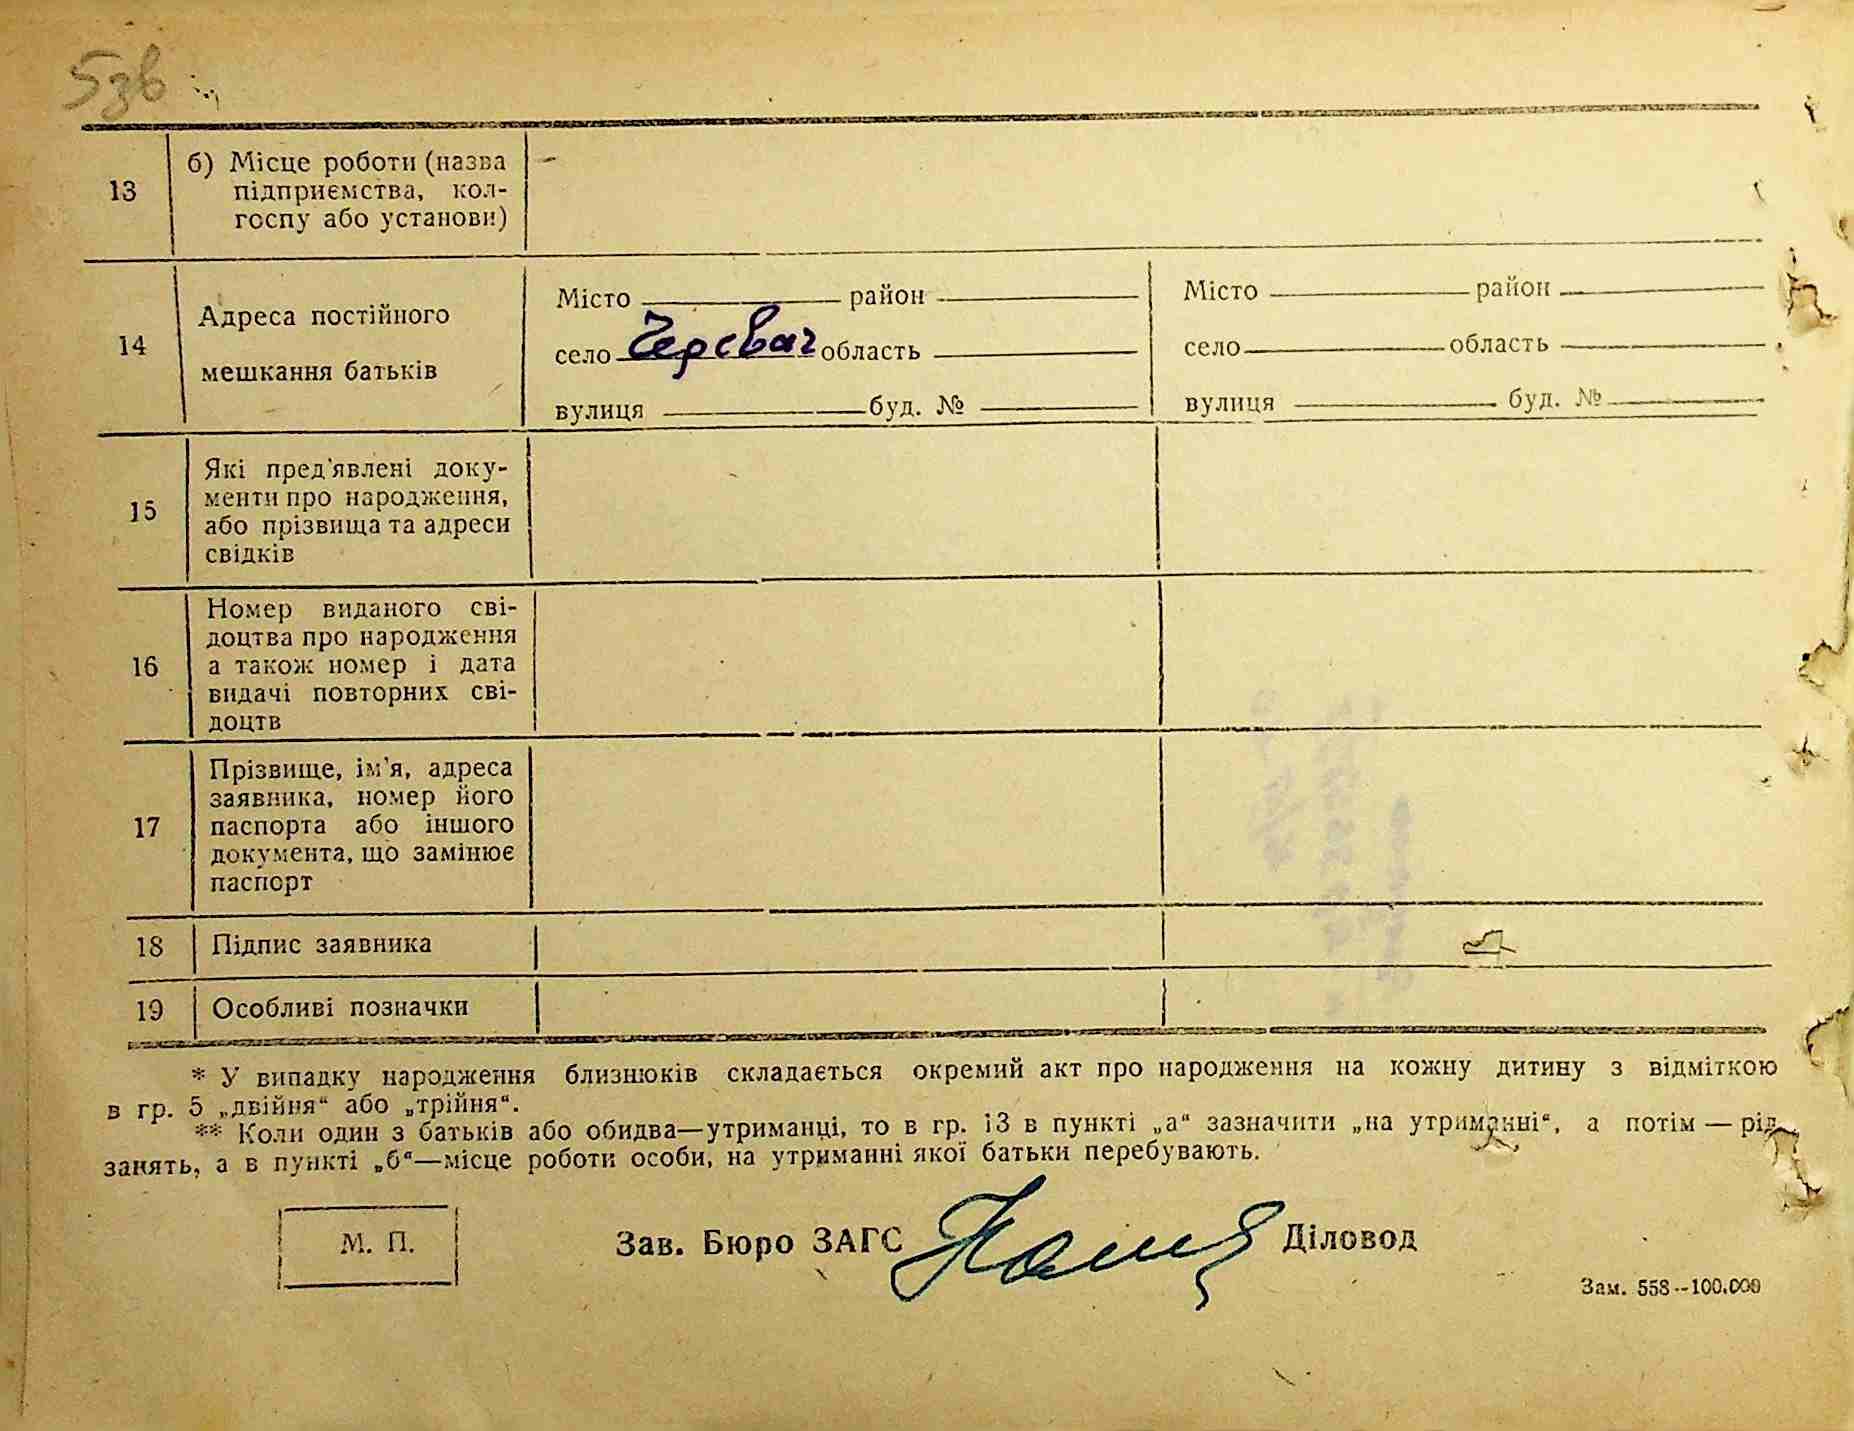 5зв
13
б) Місце роботи (назва
підприємства, кол-
госпу або установи)
14
Адреса постійного
мешкання батьків
Місто район
село Черевач область
вулиця буд. №
Місто район
село область
вулиця буд. №
15
Які пред'явлені доку-
менти про народження,
або прізвища та адреси
свідків
16
Номер виданого сві-
доцтва про народження
а також номер і дата
видачі повторних сві-
доцтв
17
Прізвище, ім'я, адреса
заявника, номер його
паспорта або іншого
документа, що замінює
паспорт
18 Підпис заявника
19 Особливі позначки
* У випадку народження близнюків складається окремий акт про народження на кожну дитину з відміткою
в гр. 5 „двійня“ або „трійня“.
** Коли один з батьків або обидва—утриманці, то в гр. 13 в пункті „а“ зазначити „на утриманні“, а потім — рід
занять, а в пункті „б“—місце роботи особи, на утриманні якої батьки перебувають.
М. П.
Зав. Бюро ЗАГС Діловод
Зам. 558--100.000